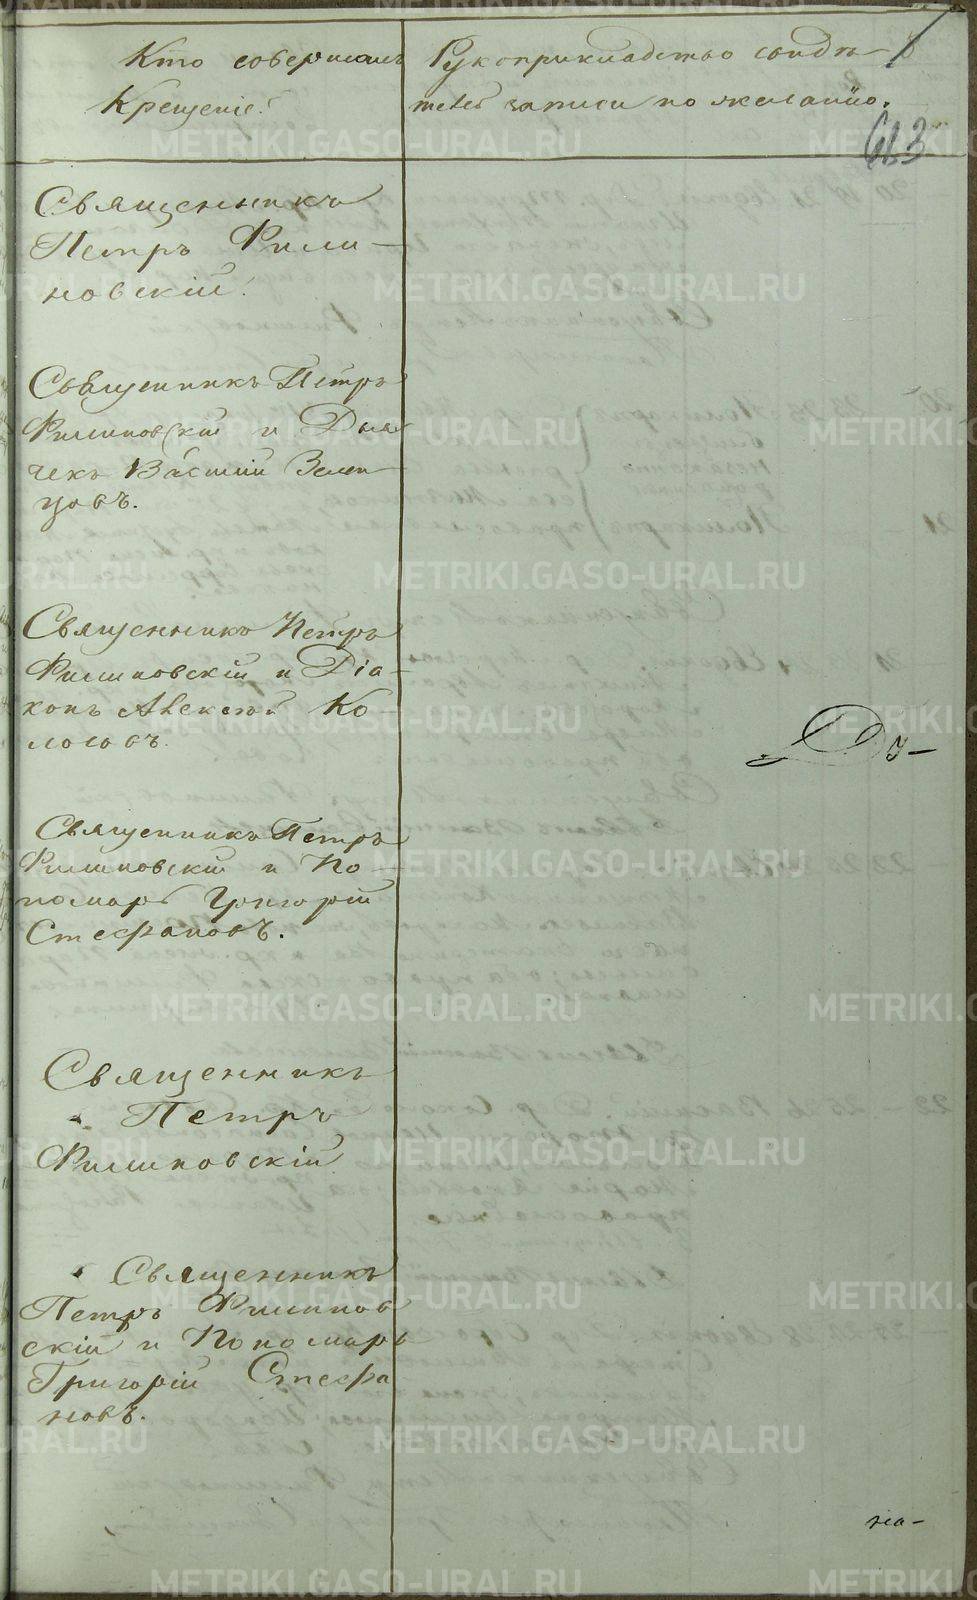 Кто совершалъ
Крещеніе?
Рукоприкладство свидѣ-
телей записи по желанію.
613
Священникъ
Петръ Фили-
новскій.
Священникъ Петръ
Филиновскій и Дья
чекъ Василій Зелен
цовъ.
Священникъ Петръ
Филиновскій и Діа-
конъ Алексѣй Ко-
лосовъ.
Священникъ Петръ
Филиновскій и По-
номарь Григорій
Стефановъ.
Священникъ
Петръ
Филиновскій.
Священникъ
Петръ Филинов
скій и Пономарь
Григорій Стефа
новъ.
Ду-
на-
METRIKI.GASO-URAL.RU